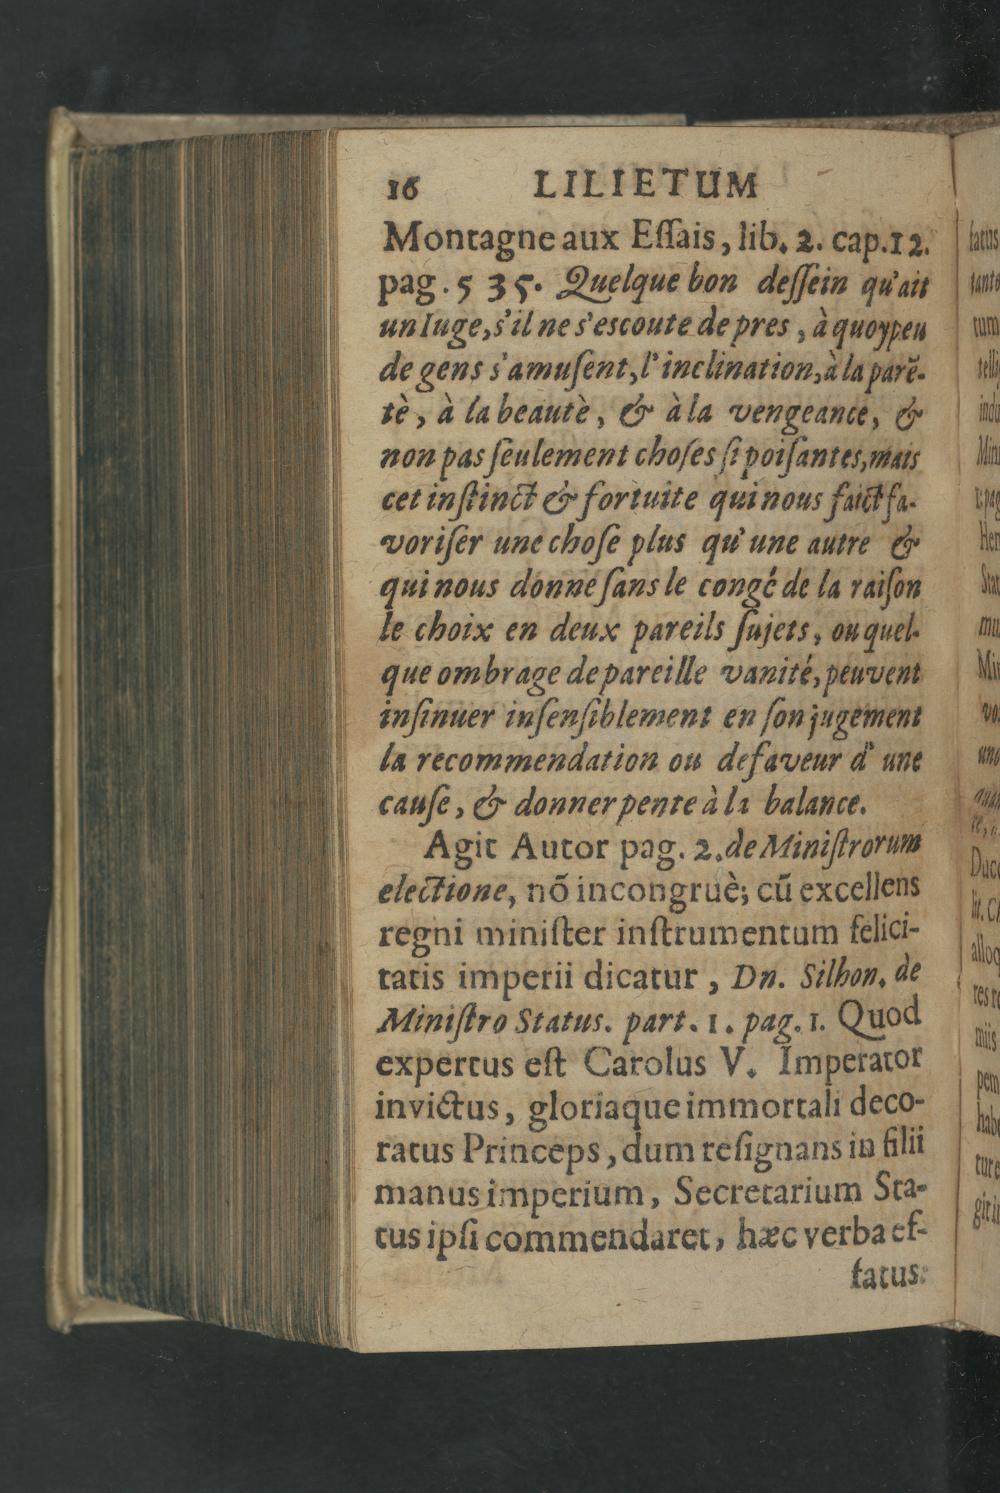 16 LILIETUM
Montagne aux Eſſais, lib. 2. cap. 12.
pag. 535. Quelque bon deſſein qu'ait
un Iuge, s'il ne s'eſcoute de pres, à quoy peu
de gens s'amuſent, l'inclination, à la parẽ-
tè, à la beautè, & à la vengeance, &
non pas ſeulement choſes ſi poiſantes, mais
cet inſtinct & fortuite qui nous faict fa-
voriſer une choſe plus qu'une autre &
qui nous donne ſans le congé de la raiſon
le choix en deux pareils ſujets, ou quel-
que ombrage de pareille vanité, peuvent
inſinuer inſenſiblement en ſon jugement
la recommendation ou defaveur d'une
cauſe, & donner pente à la balance.
Agit Autor pag. 2. de Miniſtrorum
electione, nõ incongruè; cũ excellens
regni miniſter inſtrumentum felici-
tatis imperii dicatur, Dn. Silhon. de
Miniſtro Status. part. 1. pag. 1. Quod
expertus eſt Carolus V. Imperator
invictus, gloriaque immortali deco-
ratus Princeps, dum reſignans in filii
manus imperium, Secretarium Sta-
tus ipſi commendaret, hæc verba ef-
fatus: